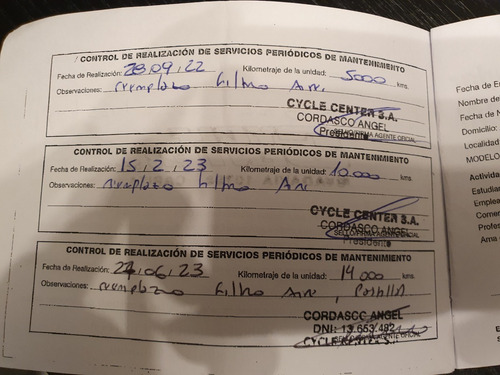 CONTROL DE REALIZACIÓN DE SERVICIOS PERIÓDICOS DE MANTENIMIENTO
Fecha de Realización: 28.09.22 Kilometraje de la unidad: 5000 kms.
Observaciones: reemplazo filtro Aire.
CYCLE CENTER S.A.
CORDASCO ANGEL
SELLO/FIRMA AGENTE OFICIAL
Presidente
CONTROL DE REALIZACIÓN DE SERVICIOS PERIÓDICOS DE MANTENIMIENTO
Fecha de Realización: 15.2.23 Kilometraje de la unidad: 10.000 kms.
Observaciones: reemplazo filtro Aire
CYCLE CENTER S.A.
CORDASCO ANGEL
SELLO/FIRMA AGENTE OFICIAL
Presidente
CONTROL DE REALIZACIÓN DE SERVICIOS PERIÓDICOS DE MANTENIMIENTO
Fecha de Realización: 06.23 Kilometraje de la unidad: 14.000 kms.
Observaciones: reemplazo filtro Aire,
CORDASCO ANGEL
DNI: 13.653.482
Fecha de
Nombre de
Fecha de
Domicilio
Localidad
MODELO
Activida
Estudia
Emplea
Comer
Profes
Ama